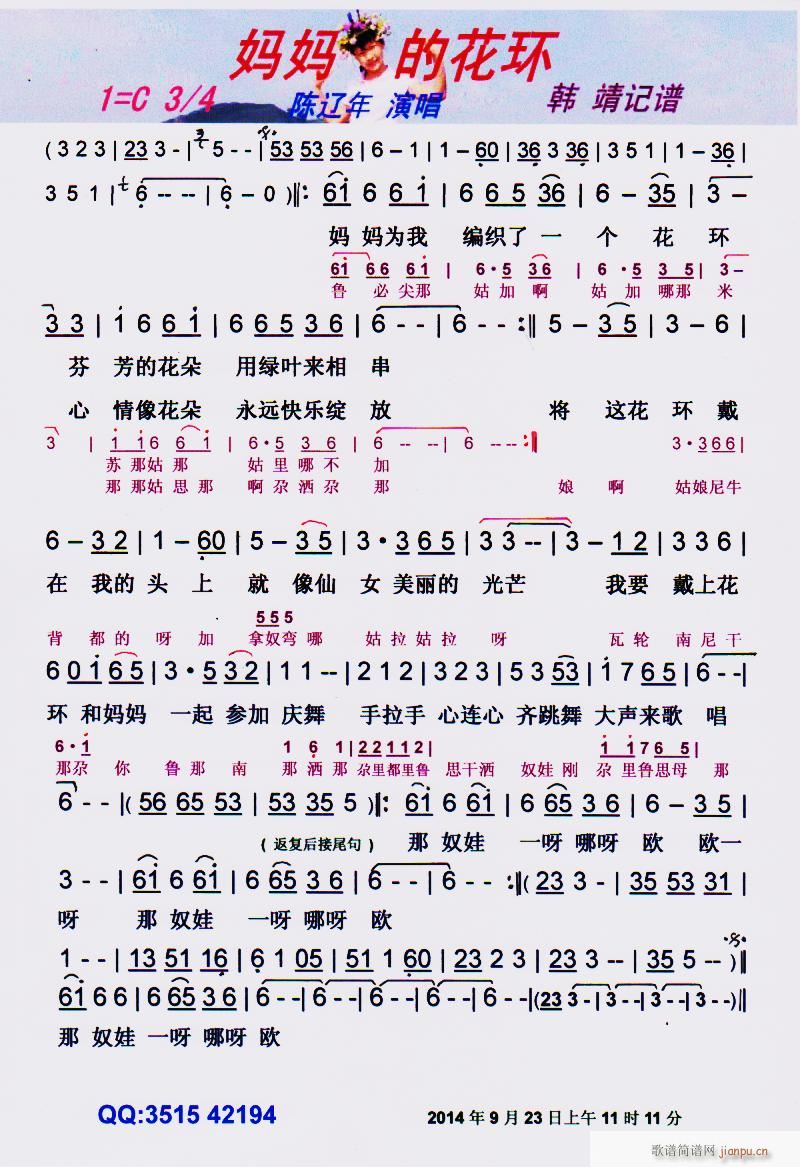 妈妈的花环
1=C 3/4 陈辽年 演唱 韩 靖记谱
( 3 2 3 | 23 3 - | 5 - - | 53 53 56 | 6 – 1 | 1 – 60 | 36 3 36 | 3 5 1 | 1 – 36 |
3 5 1 | 6 -- -- | 6 – 0 )‖: 61 6 6 1 | 6 6 5 36 | 6 – 35 | 3 –
妈 妈为我 编织了 一 个 花 环
61 66 61 | 6·5 36 | 6·5 3 5 | 3–
鲁 必尖那 姑加啊 姑 加哪那 米
33 | 1 6 61 | 6 6 5 3 6 | 6 - - | 6 - - :‖ 5 – 35 | 3 – 36 |
芬 芳的花朵 用绿叶来相 串
心 情像花朵 永远快乐绽 放 将 这花 环 戴
3 | 1 16 6 1 | 6·5 3 6 | 6 -- -- | 6 -- :‖ 3·366|
苏 那姑 那 姑 里 哪 不 加
那 那姑 思 那 啊 尕 洒 尕 那 娘 啊 姑娘尼牛
6 – 32 | 1 – 60 | 5 – 35 | 3·365 | 33 -- | 3 – 12 | 3 3 6 |
在 我的 头 上 就 像仙 女 美丽的 光芒 我要 戴上花
5 5 5
背 都 的 呀 加 拿奴弯 哪 姑 拉 姑 拉 呀 瓦 轮 南 尼 干
6 0 1 65 | 3·5 32 | 1 1 -- | 2 1 2 | 3 2 3 | 5 53 | 1 7 6 5 | 6 - - |
环 和妈妈 一起 参加 庆舞 手拉手 心连心 齐跳舞 大声来歌 唱
6·1 1 6 1 | 22112 | 1 17 6 5 |
那尕 你 鲁 那 南 那 洒 那 尕里都里鲁 思干洒 奴娃 刚 尕 里鲁思母 那
6 - - |( 56 65 53 | 53 35 5 )‖: 61 6 61 | 6 65 3 6 | 6 – 35 |
( 返复后接尾句 ) 那 奴娃 一呀 哪呀 欧 欧一
3 - - | 61 6 61 | 6 65 3 6 | 6 - - | 6 - - :‖( 23 3 - | 35 53 31 |
呀 那 奴娃 一呀 哪呀 欧
1 - - | 13 51 16 | 6 1 05 | 51 1 60 | 23 2 3 | 23 3 -- | 35 5 -- )‖
61 6 6 | 6 65 3 6 | 6 - - | 6 - - | 6 - - | 6 - - |(23 3 - | 3 - - | 3 - - | 3 - - )‖
那 奴娃 一呀 哪呀 欧
QQ:3515 42194
2014 年 9 月 23 日上午 11 时 11 分
歌谱简谱网
jianpu.cn